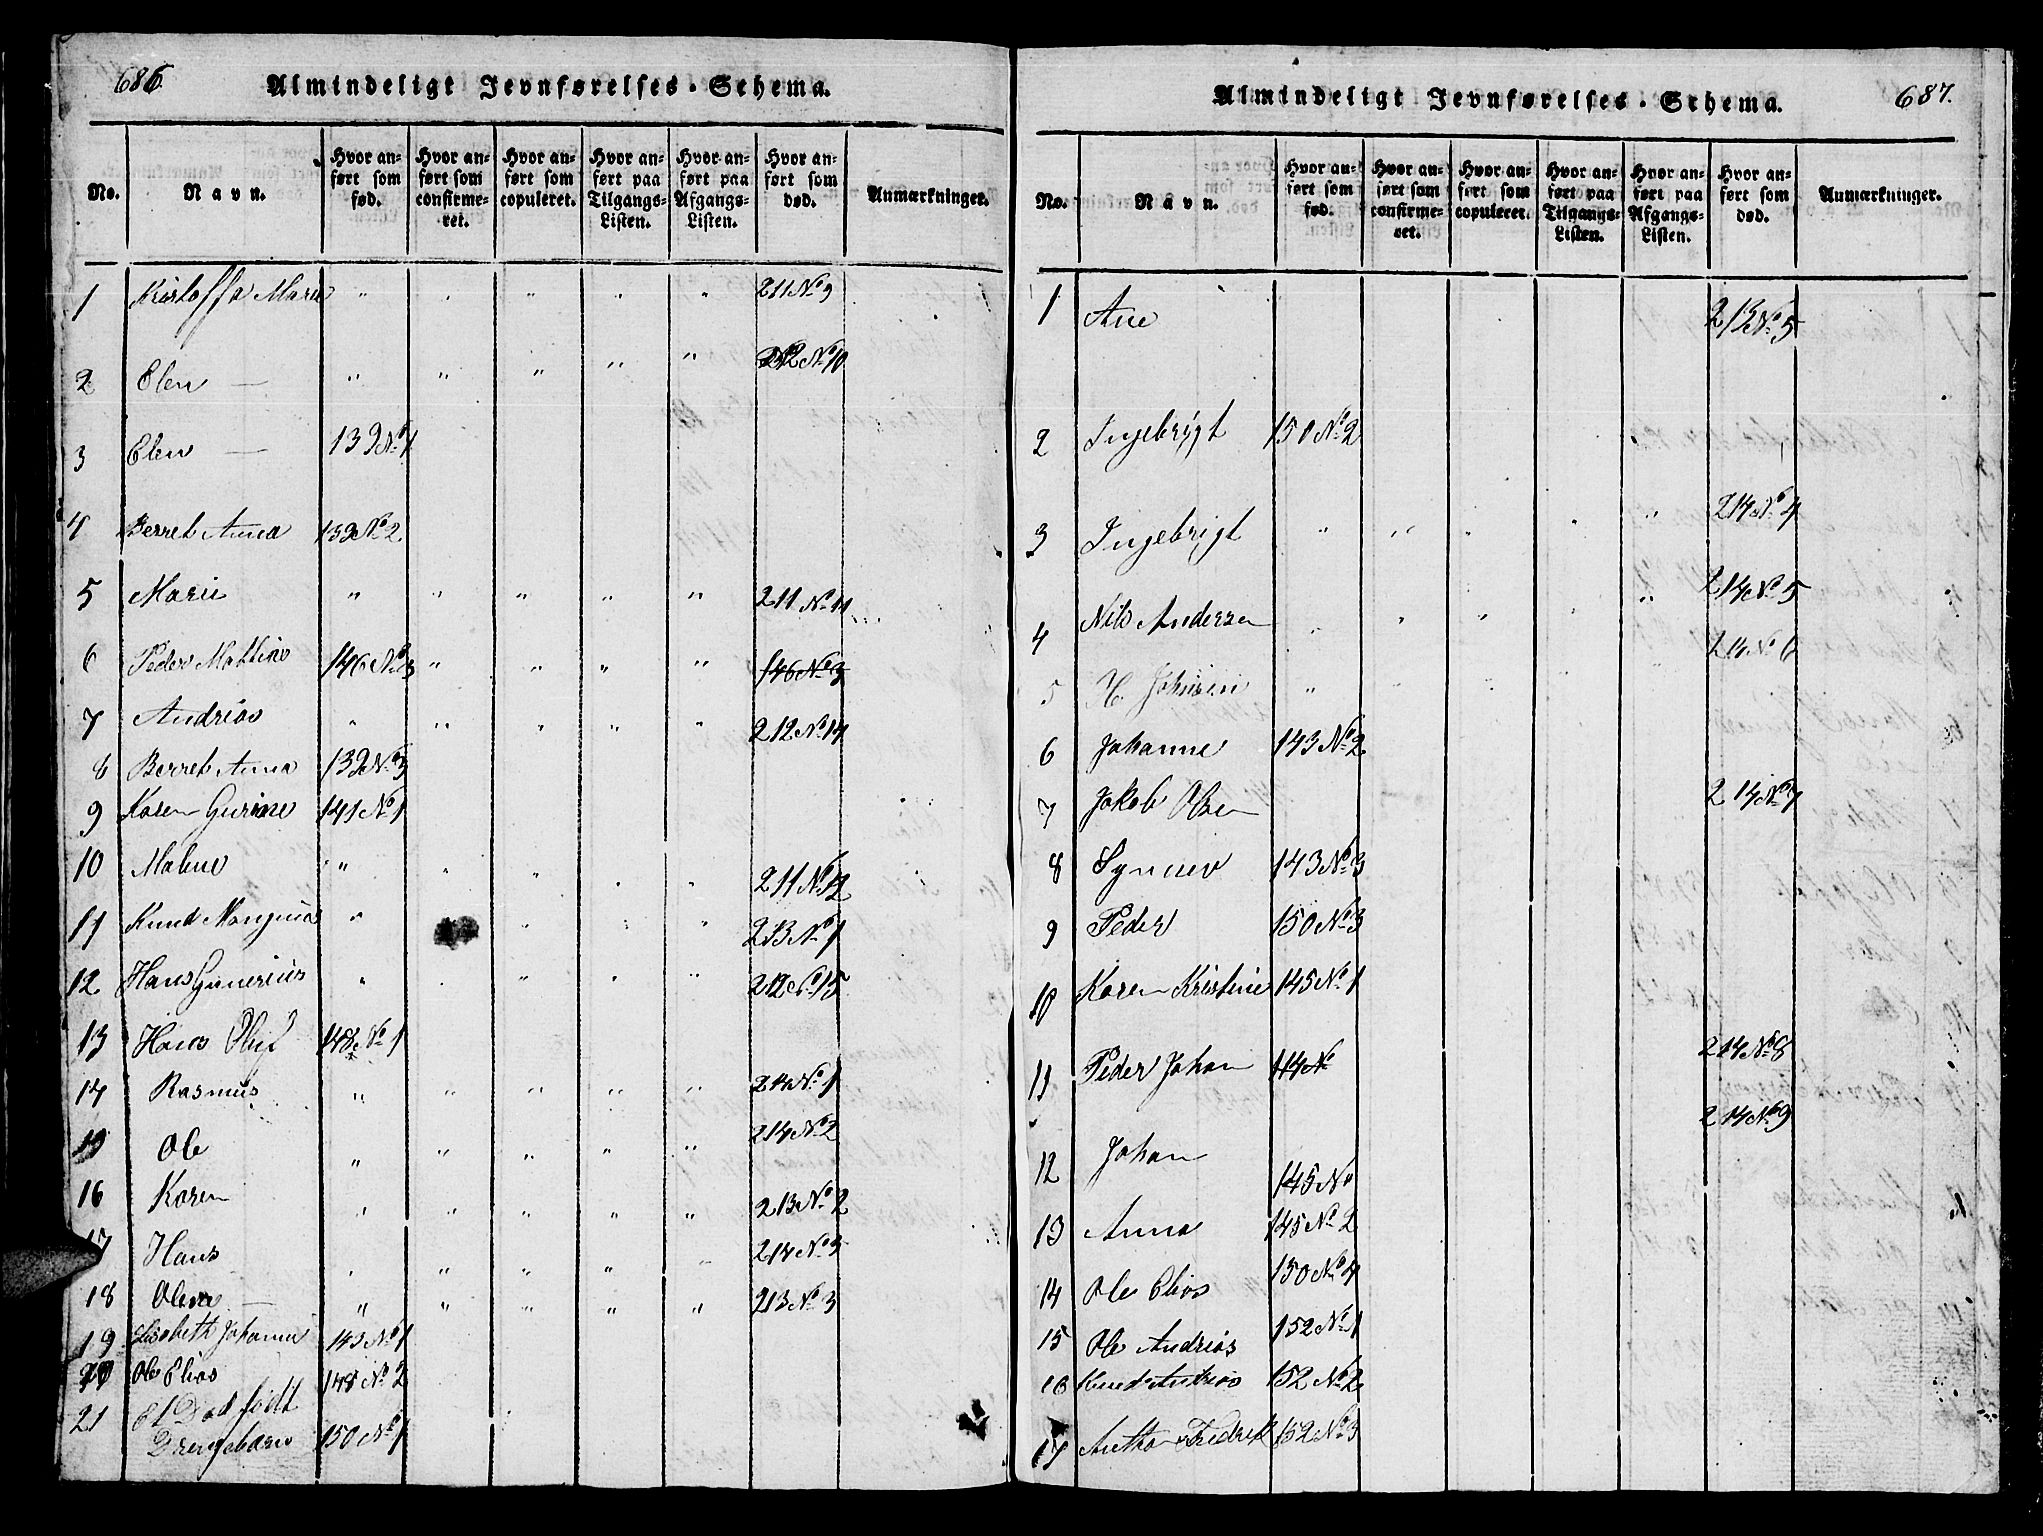 686.
Almindeligt Jevnførelses-Schema.
No. Navn. Hvor anført som fød. Hvor anført som confirmeret. Hvor anført som copuleret. Hvor anført paa Tilgangs-Listen. Hvor anført paa Afgangs-Listen. Hvor anført som død. Anmærkninger.
1 Kristoffa Marie " " " " " 211 No 9
2 Elen — " " " " " 212 No 10
3 Elen — 139 No 1
4 Berret Anna 139 No 2
5 Marie " " " " " 211 No 11
6 Peder Mattias 146 No 3 " " " " 146 No 3
7 Andrias " " " " " 212 No 14
8 Berret Anna 139 No 3
9 Karen Gurine 141 No 1
10 Malene " " " " " 211 No 12
11 Knud Mangnus " " " 213 No 1
12 Hans Gunerius " " " " " 212 No 15
13 Hans Oluf 148 No 1
14 Rasmus " " " " " 214 No 1
15 Ole " " " " " 214 No 2
16 Karen " " " " " 213 No 2
17 Hans " " " " " 214 No 3
18 Olena — " " " " " 213 No 3
19 Elisabeth Johanna 143 No 1
20 Ole Elias 148 No 2
21 Et Dødfødt
Drengebarn 150 No 1
Almindeligt Jevnførelses-Schema.
687.
No. Navn. Hvor anført som fød. Hvor anført som confirmeret. Hvor anført som copuleret. Hvor anført paa Tilgangs-Listen. Hvor anført paa Afgangs-Listen. Hvor anført som død. Anmærkninger.
1 Ane 213 No 5
2 Ingebrigt 150 No 2
3 Ingebrigt " " " " " 214 No 4
4 Nils Andersen " " " " " 214 No 5
5 H. Johnsen " " " " " 214 No 6
6 Johanne 143 No 2
7 Jakob Olsen 214 No 7
8 Synnev 143 No 3
9 Peder 150 No 3
10 Karen Kristine 145 No 1
11 Peder Johan 114 No 214 No 8
12 Johan 214 No 9
145 No
13 Anna 145 No 2
14 Ole Elias 150 No 4
15 Ole Andrias 152 No 1
16 Knud Andrias 152 No 2
17 Anthon Fredrik 152 No 3